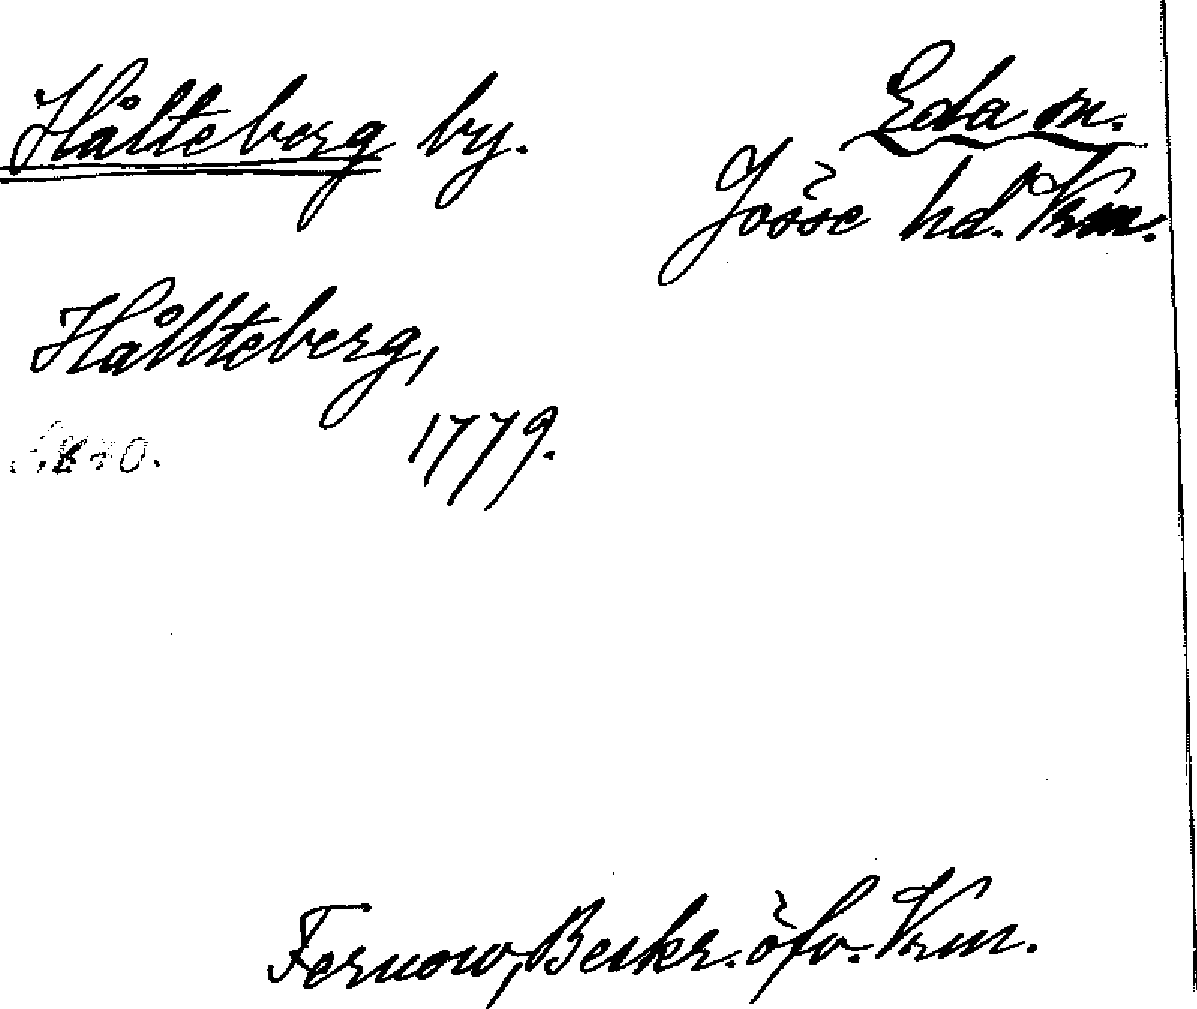 Hålteberg by.
Eda sn.
Jösse hd. Vrm.
Hållteberg,
1779.
Fernow, Beskr. öfv. Vrm.